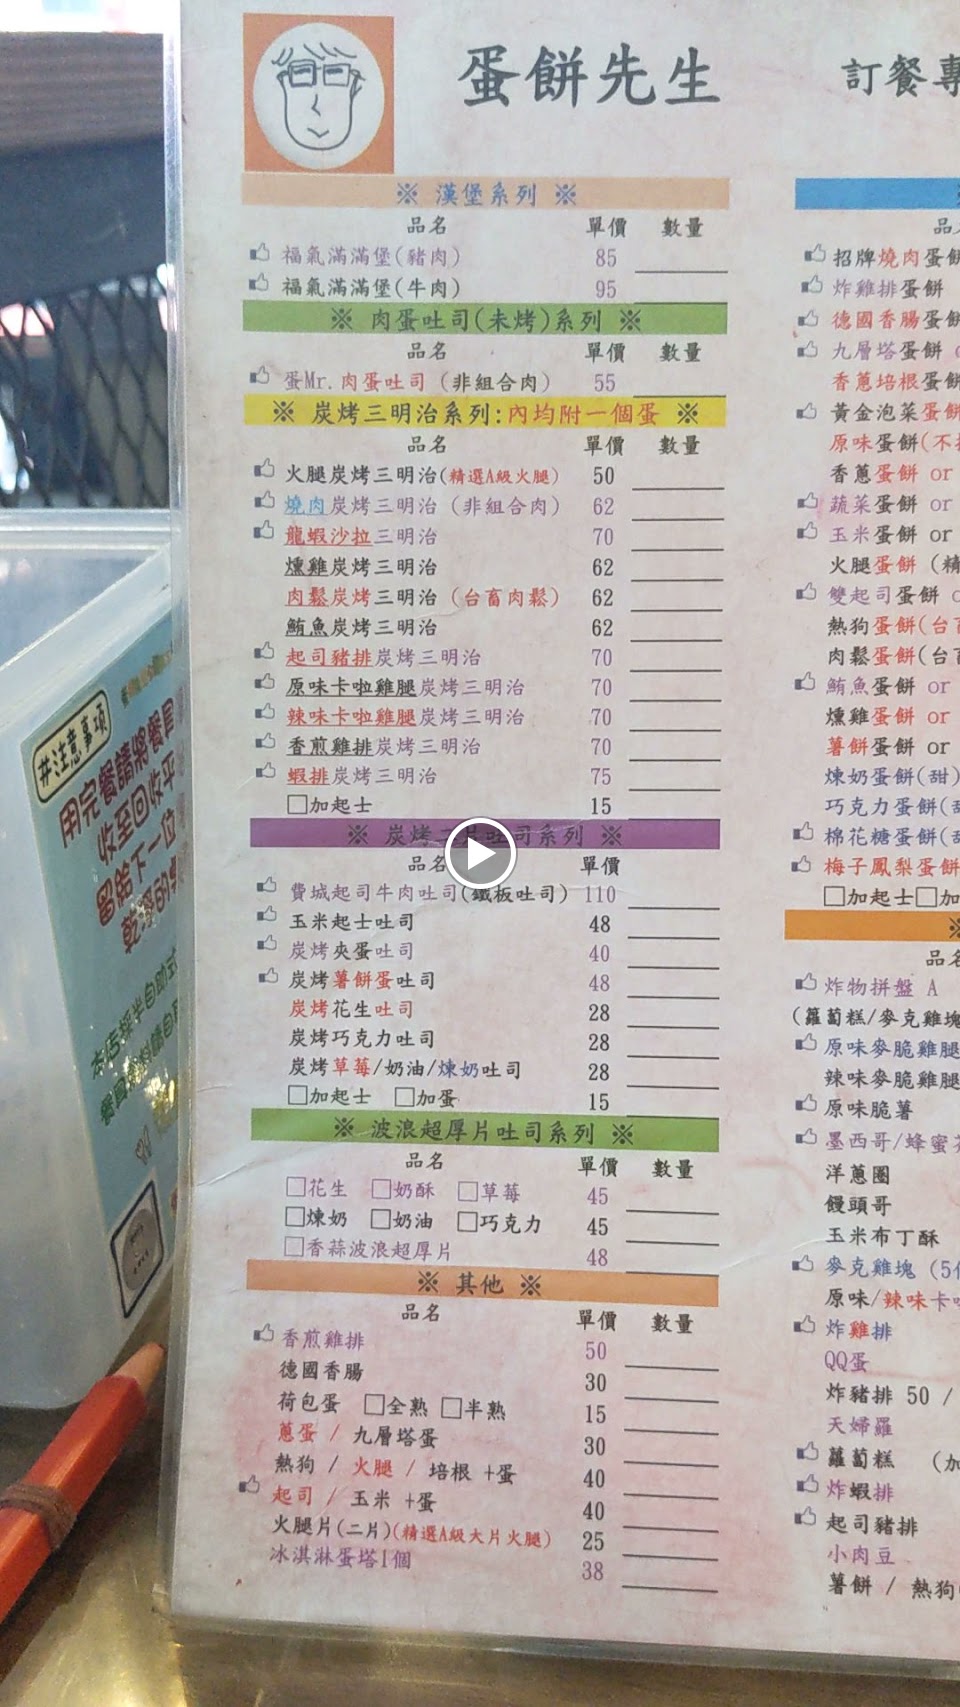 蛋餅先生
訂餐專
※ 漢堡系列 ※
品名 單價 數量
福氣滿滿堡(豬肉) 85
福氣滿滿堡(牛肉) 95
※ 肉蛋吐司(未烤)系列 ※
品名 單價 數量
蛋Mr.肉蛋吐司 (非組合肉) 55
※ 炭烤三明治系列:內均附一個蛋 ※
品名 單價 數量
火腿炭烤三明治(精選A級火腿) 50
燒肉炭烤三明治 (非組合肉) 62
龍蝦沙拉三明治 70
燻雞炭烤三明治 62
肉鬆炭烤三明治 (台畜肉鬆) 62
鮪魚炭烤三明治 62
起司豬排炭烤三明治 70
原味卡啦雞腿炭烤三明治 70
辣味卡啦雞腿炭烤三明治 70
香煎雞排炭烤三明治 70
蝦排炭烤三明治 75
□加起士 15
※ 炭烤二片吐司系列 ※
品名 單價
費城起司牛肉吐司(鐵板吐司) 110
玉米起士吐司 48
炭烤夾蛋吐司 40
炭烤薯餅蛋吐司 48
炭烤花生吐司 28
炭烤巧克力吐司 28
炭烤草莓/奶油/煉奶吐司 28
□加起士 □加蛋 15
※ 波浪超厚片吐司系列 ※
品名 單價 數量
□花生 □奶酥 □草莓 45
□煉奶 □奶油 □巧克力 45
□香蒜波浪超厚片 48
※ 其他 ※
品名 單價 數量
香煎雞排 50
德國香腸 30
荷包蛋 □全熟 □半熟 15
蔥蛋 / 九層塔蛋 30
熱狗 / 火腿 / 培根 +蛋 40
起司 / 玉米 +蛋 40
火腿片(二片)(精選A級大片火腿) 25
冰淇淋蛋塔1個 38
※
品名
招牌燒肉蛋餅
炸雞排蛋餅
德國香腸蛋餅
九層塔蛋餅 o
香蔥培根蛋餅
黃金泡菜蛋餅
原味蛋餅(不
香蔥蛋餅 or
蔬菜蛋餅 or
玉米蛋餅 or
火腿蛋餅 (精
雙起司蛋餅 o
熱狗蛋餅(台
肉鬆蛋餅(台
鮪魚蛋餅 or
燻雞蛋餅 or
薯餅蛋餅 or
煉奶蛋餅(甜)
巧克力蛋餅(甜
棉花糖蛋餅(甜
梅子鳳梨蛋餅
□加起士□加
※
品名
炸物拼盤 A
(蘿蔔糕/麥克雞塊
原味麥脆雞腿
辣味麥脆雞腿
原味脆薯
墨西哥/蜂蜜
洋蔥圈
饅頭哥
玉米布丁酥
麥克雞塊 (5
原味/辣味卡
炸雞排
QQ蛋
炸豬排 50 /
天婦羅
蘿蔔糕 (加
炸蝦排
起司豬排
小肉豆
薯餅 / 熱狗
#注意事項
用完餐請將餐具
收至回收平
留給下一位
乾淨的
本店採半自助式